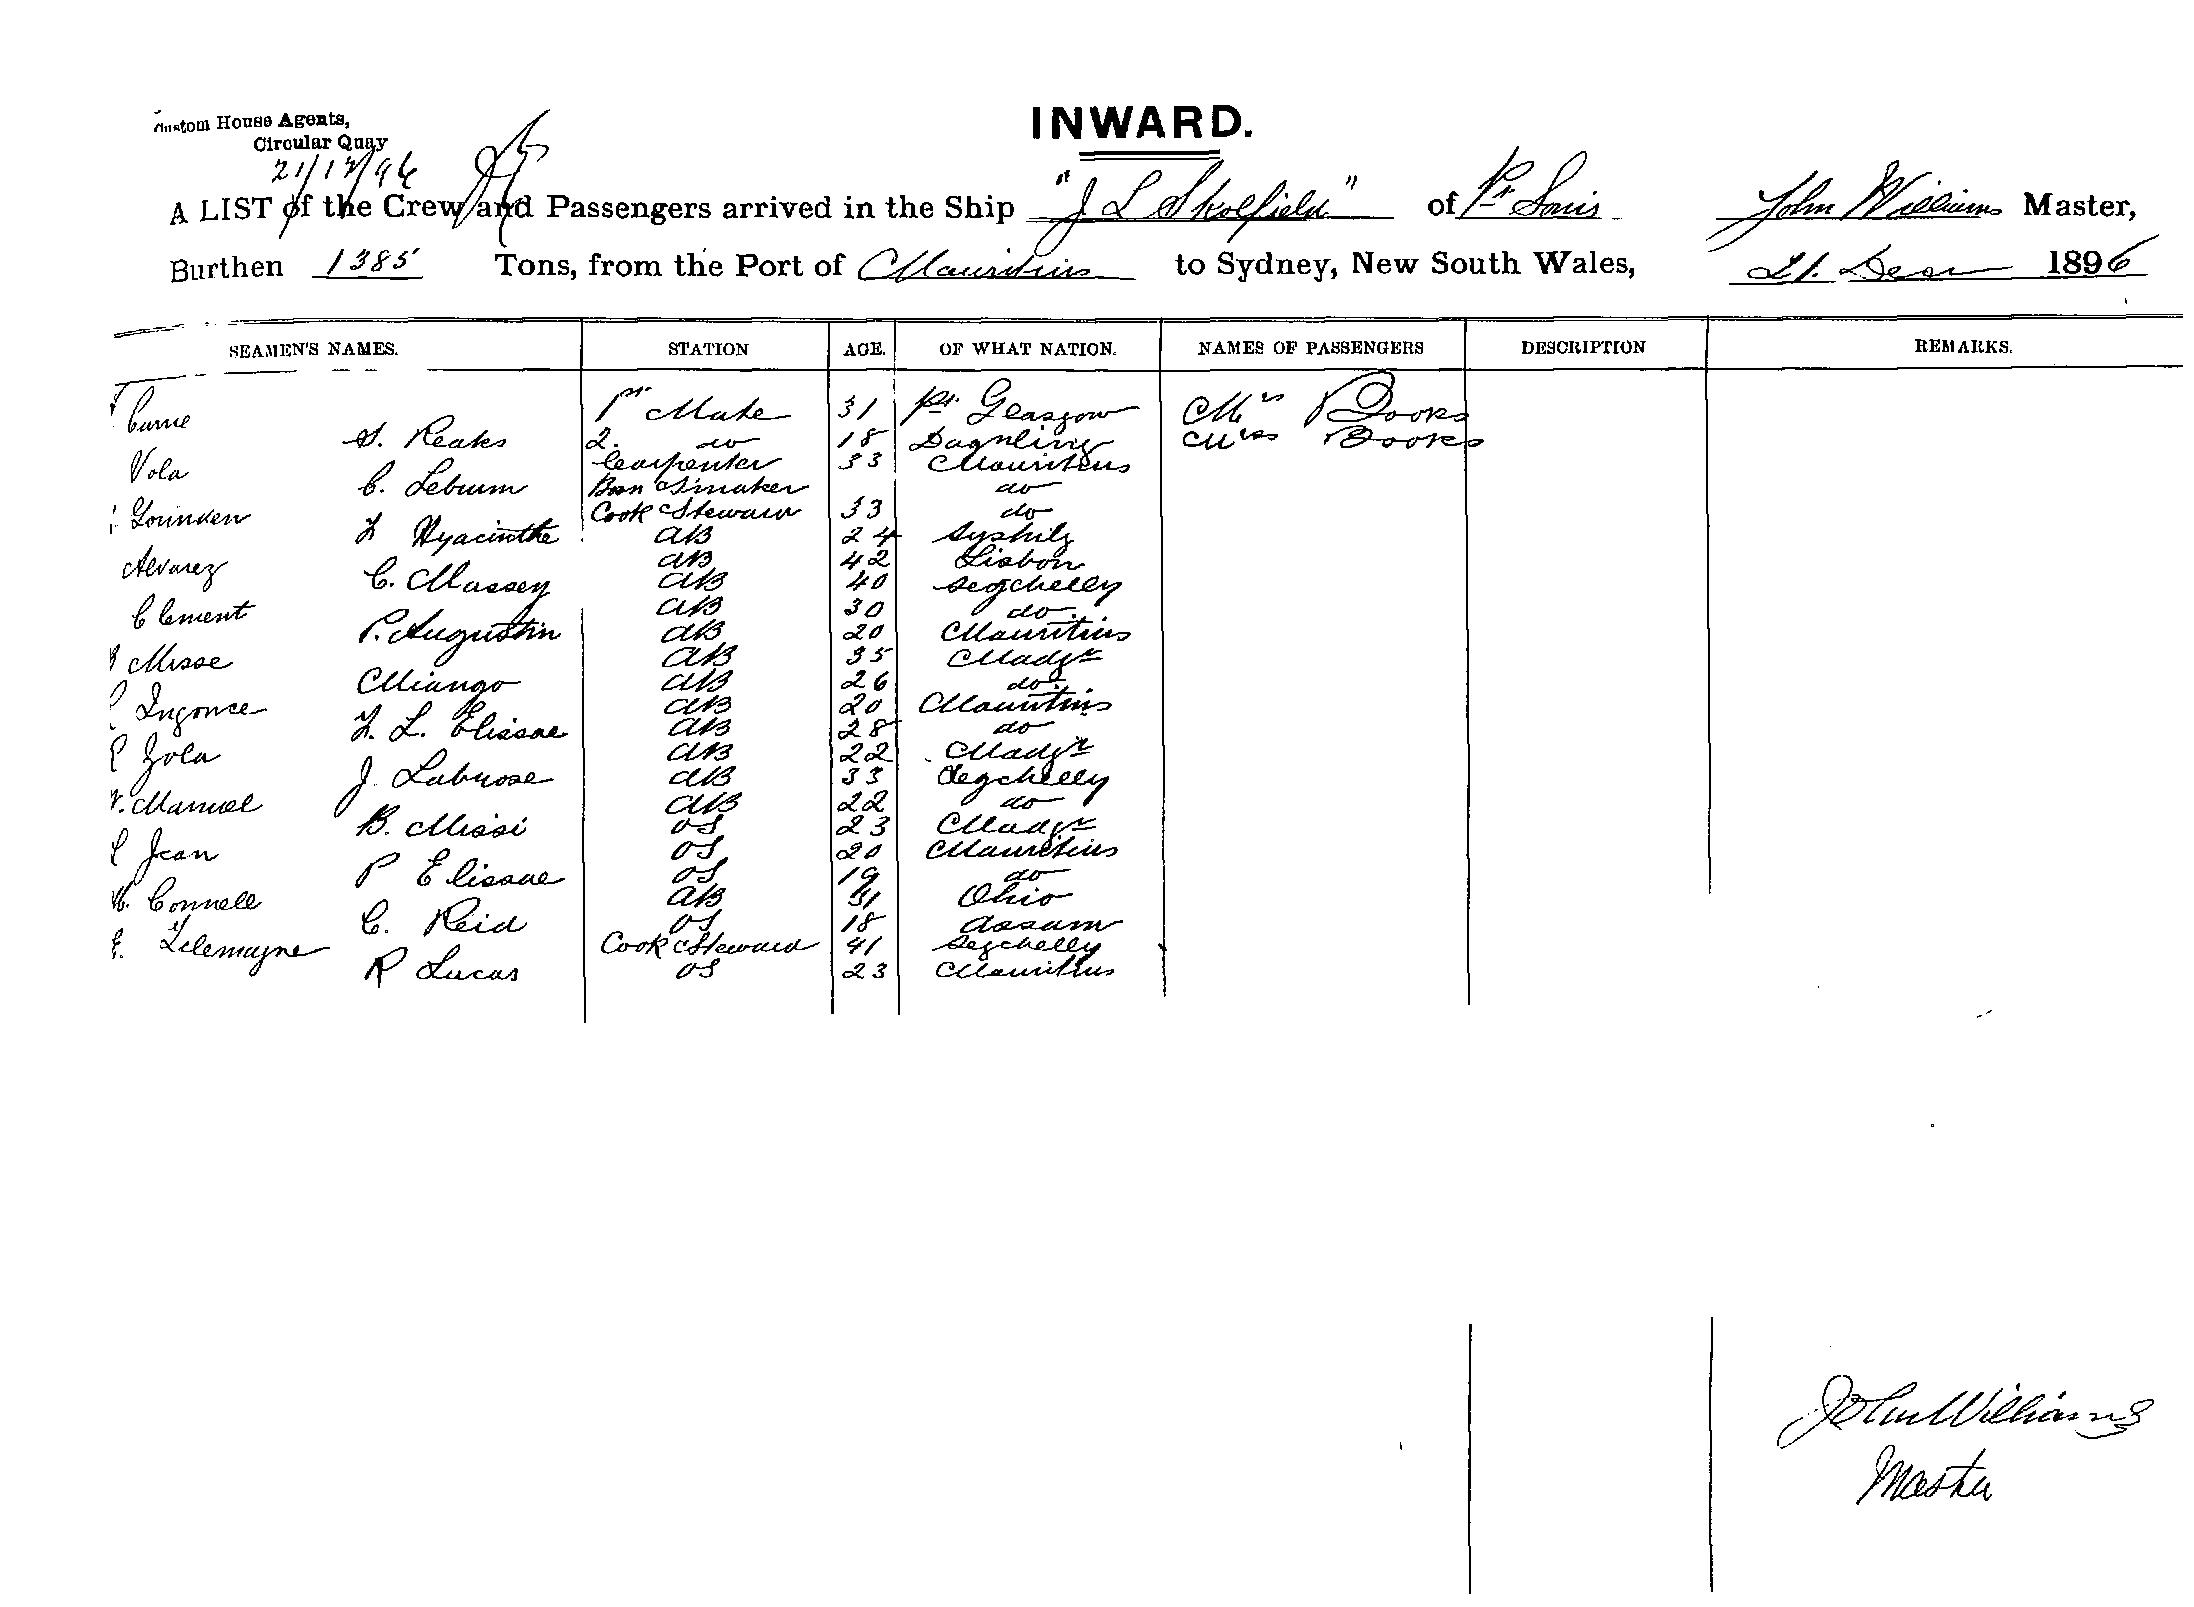 Custom House Agents,
Circular Quay
21/12/96
INWARD.
A LIST of the Crew and Passengers arrived in the Ship "J L Skolfield" of Pt Louis John Williams Master,
Burthen 1385 Tons, from the Port of Mauritius to Sydney, New South Wales, 21. Decr 1896
SEAMEN'S NAMES. STATION AGE. OF WHAT NATION. NAMES OF PASSENGERS DESCRIPTION REMARKS.
Currie 1st Mate 31 Pt. Glasgow Mrs Books
S. Reaks 2. do 18 Miss Books
Vola Carpenter 33 Mauritius
C. Lebrum do
Cook Steward 33 do
Hyacinthe AB 24
Alvarez AB 42 Lisbon
C. Massey AB 40 Segchelly
Clement AB 30 do.
P. Augustin AB 20 Mauritius
Misse AB 35 Madgr
Miango AB 26 do.
AB 20 Mauritius
L. Elissae AB 28 do
Zola AB 22 Madgr
J. Labrose AB 33 Segchelly
Manuel AB 22 do
B. Missi OS 23 Madgr
Jean OS 20 Mauritius
P Elissae OS 19 do
Connell AB 31 Ohio
C. Reid OS 18 Assam
E. Telemayne Cook Steward 41 Segchelly
R Lucas OS 23 Mauritius
John Williams
Master